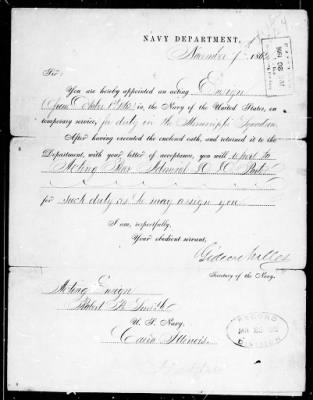 NAVY DEPARTMENT,
November 7th 1862
Sir:
You are hereby appointed an acting Ensign
(from October 1st 1862) in the Navy of the United States, on
temporary service, for duty on the Mississippi Squadron.
After having executed the enclosed oath, and returned it to the
Department, with your letter of acceptance, you will report to
Acting Rear Admiral D. D. Porter
for such duty as he may assign you.
I am, respectfully,
Your obedient servant,
Gideon Welles
Secretary of the Navy.
Acting Ensign
Robert B. Smith
U. S. Navy,
Cairo Illinois.
RECORD
DIVISION